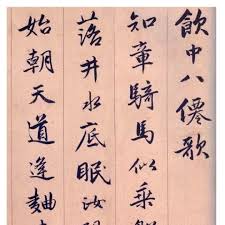 飲中八僊歌
知章騎馬似乘
落井水底眠汝
始朝天道逢麯